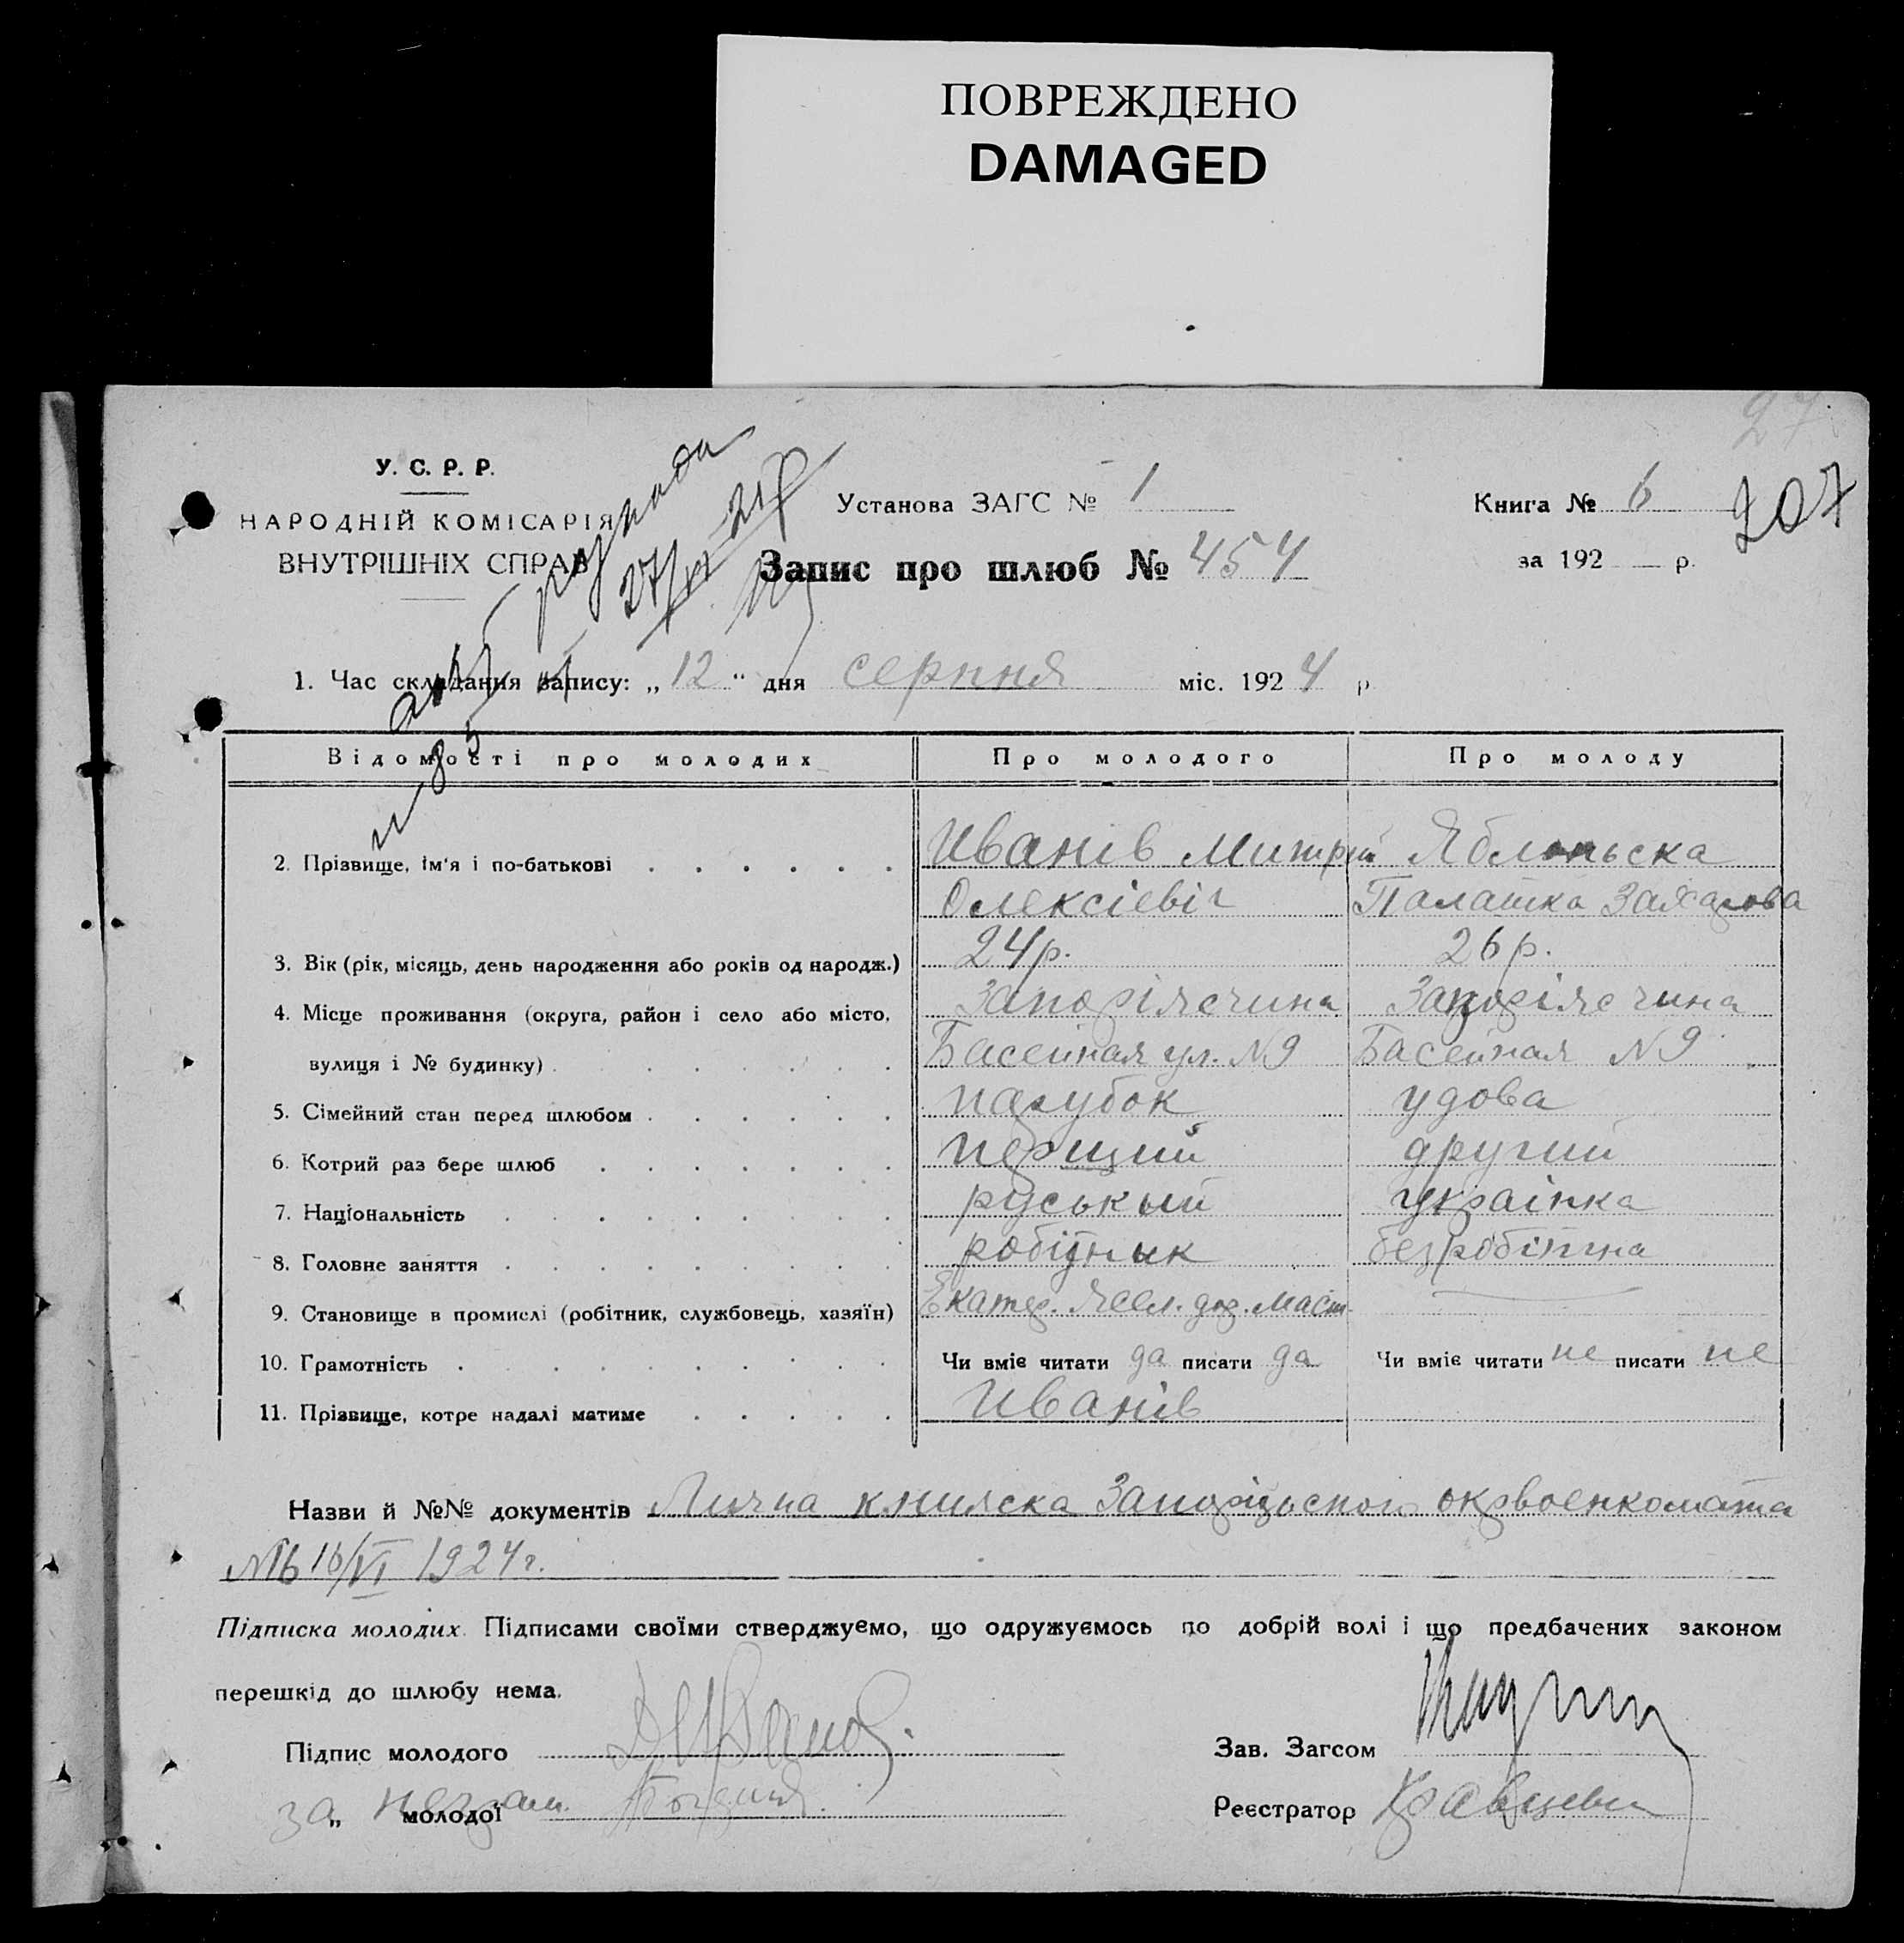 ПОВРЕЖДЕНО
DAMAGED
27
У. С. Р. Р.
НАРОДНІЙ КОМІСАРІЯ
ВНУТРІШНІХ СПРАВ
Установа ЗАГС № 1
Книга № 6
207
Запис про шлюб № 454
за 192 р.
1. Час складання запису: „ 12 " дня серпня міс. 1924 р
Відомості про молодих Про молодого Про молоду
2. Прізвище, ім'я і по-батькові Иванів Митрій Яблоньска
Олексіевіч Палашка Захарова
3. Вік (рік, місяць, день народження або років од народж.) 24р. 26р.
4. Місце проживання (округа, район і село або місто, Запоріжчина Запоріжчина
вулиця і № будинку) Басейная ул. №9 Басейная №9
5. Сімейний стан перед шлюбом парубок удова
6. Котрий раз бере шлюб перщий другий
7. Національність руський украінка
8. Головне заняття робітнык безробітна
9. Становище в промислі (робітник, службовець, хазяїн) Екатер. жел. дор. маст.
10. Грамотність Чи вміє читати да писати да Чи вміє читати не писати не
11. Прізвище, котре надалі матиме Иванів
Назви й №№ документів Лична книжка окрвоенкомата
16/VI 1924г.
Підписка молодих. Підписами своїми стверджуємо, що одружуємось по добрій волі і що предбачених законом
перешкід до шлюбу нема.
Підпис молодого ДИванов
Зав. Загсом
за неграм. „ молодої
Реєстратор